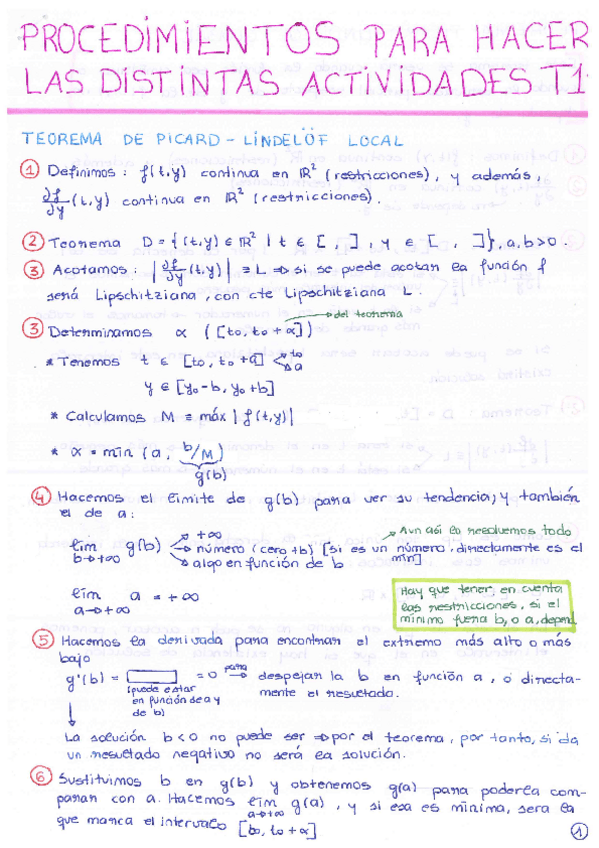 PROCEDIMIENTOS PARA HACER
LAS DISTINTAS ACTIVIDADES T1.
TEOREMA DE PICARD - LINDELÖF LOCAL
① Definimos: f(t,y) continua en ℝ² (restricciones), y además,
∂f/∂y (t,y) continua en ℝ² (restricciones).
② Teorema D = {(t,y) ∈ ℝ² | t ∈ [ , ], y ∈ [ , ]}, a,b>0.
③ Acotamos: |∂f/∂y (t,y)| = L ⇒ si se puede acotar la función f
será Lipschitziana, con cte Lipschitziana L.
③ Determinamos α ([to, to + α]) → del teorema
* Tenemos t ∈ [to, to + a] < to a
y ∈ [yo - b, yo + b]
* Calculamos M = máx |f(t,y)|
* α = mín (a, b/M)
g(b)
④ Hacemos el límite de g(b) para ver su tendencia; y también
el de a:
lím b→+∞ g(b) → +∞
→ número (cero + b) [si es un número, directamente es el mín]
→ algo en función de b
→ Aun así lo resolvemos todo
lím a→+∞ a = +∞
Hay que tener en cuenta
las restricciones, si el
mínimo fuera b, o a, depend
⑤ Hacemos la derivada para encontrar el extremo más alto o más
bajo
g'(b) = = 0 para → despejar la b en función a, o directa-
mente el resultado.
(puede estar
en función de a y
de b)
La solución b<0 no puede ser ⇒ por el teorema, por tanto, si da
un resultado negativo no será la solución.
⑥ Sustituimos b en g(b) y obtenemos g(a) para poderla com-
parar con a. Hacemos lím a→+∞ g(a), y si esa es mínima, será la
que marca el intervalo [to, to + α]
①